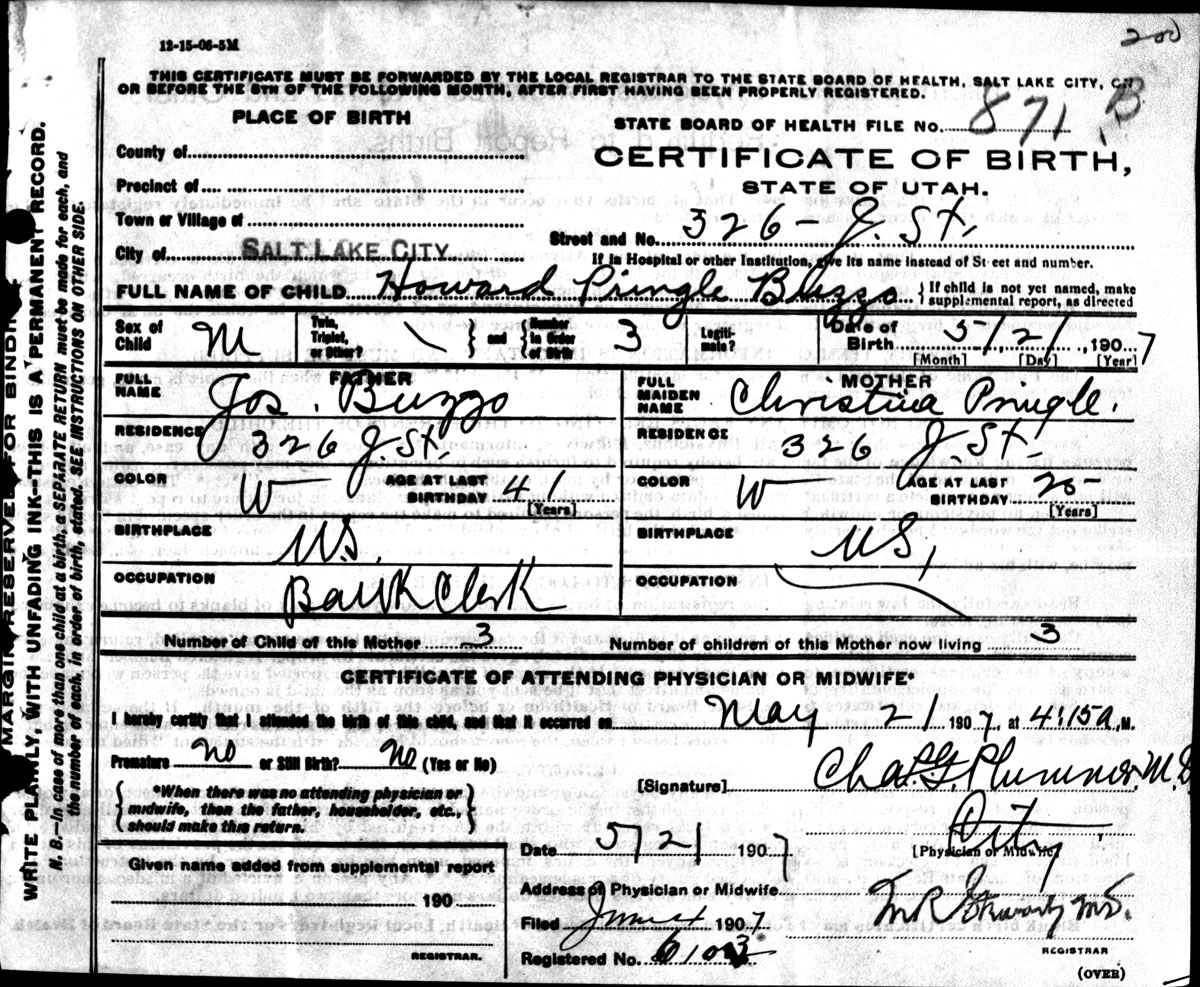 200
12-15-06-5M
THIS CERTIFICATE MUST BE FORWARDED BY THE LOCAL REGISTRAR TO THE STATE BOARD OF HEALTH, SALT LAKE CITY, ON
OR BEFORE THE 5TH OF THE FOLLOWING MONTH, AFTER FIRST HAVING BEEN PROPERLY REGISTERED.
PLACE OF BIRTH
STATE BOARD OF HEALTH FILE No. 871 B
CERTIFICATE OF BIRTH,
STATE OF UTAH.
County of
Precinct of
Town or Village of
Street and No. 326 - J. St.
City of SALT LAKE CITY
If in Hospital or other Institution, give its name instead of Street and number.
FULL NAME OF CHILD Howard Pringle Buzzo { If child is not yet named, make supplemental report, as directed
Sex of Child M Twin, Triplet, or Other? \ } and { Number in Order of Birth 3 Legitimate? Date of Birth 5/21, 1907
[Month] [Day] [Year]
FATHER
FULL NAME Jos. Buzzo
RESIDENCE 326 J. St.
COLOR W AGE AT LAST BIRTHDAY 41
[Years]
BIRTHPLACE U.S.
OCCUPATION Bank Clerk
MOTHER
FULL MAIDEN NAME Christina Pringle.
RESIDENCE 326 J. St.
COLOR W AGE AT LAST BIRTHDAY
[Years]
BIRTHPLACE U.S.
OCCUPATION
Number of Child of this Mother 3 Number of children of this Mother now living 3
CERTIFICATE OF ATTENDING PHYSICIAN OR MIDWIFE*
I hereby certify that I attended the birth of this child, and that it occurred on May 21 1907, at 4:15 A. M.
Premature no or Still Birth? No (Yes or No)
{ *When there was no attending physician or midwife, then the father, householder, etc., should make this return. }
[Signature] Chas. G. Plummer M.D
City
[Physician or Midwife]
Date 5/21 1907
Given name added from supplemental report
190
REGISTRAR.
Address of Physician or Midwife
Filed June 4 1907
Registered No. 6103
M.D.
REGISTRAR
(OVER)
MARGIN RESERVE FOR BINDING
WRITE PLAINLY, WITH UNFADING INK--THIS IS A PERMANENT RECORD.
N. B.--In case of more than one child at a birth, a SEPARATE RETURN must be made for each, and
the number of each, in order of birth, stated. SEE INSTRUCTIONS ON OTHER SIDE.